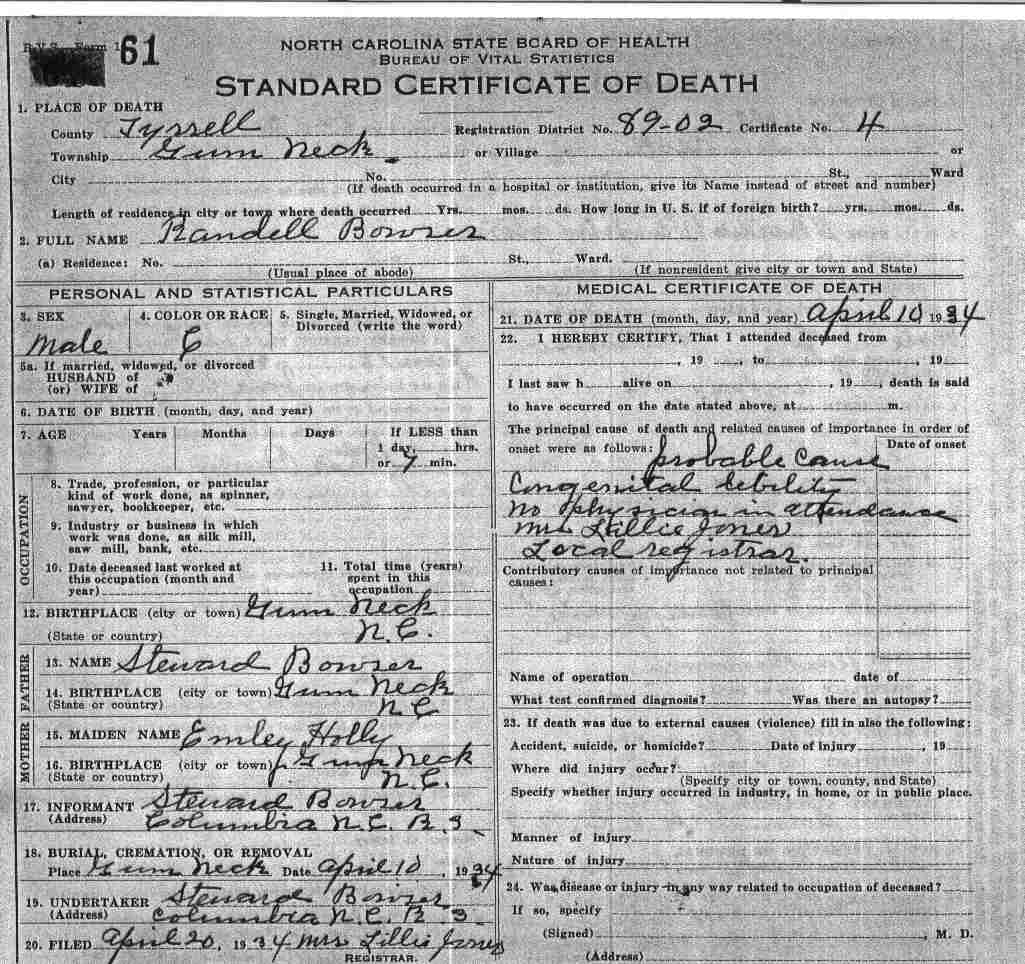 61
NORTH CAROLINA STATE BOARD OF HEALTH
BUREAU OF VITAL STATISTICS
STANDARD CERTIFICATE OF DEATH
1. PLACE OF DEATH
County Tyrrell Registration District No. 89-02 Certificate No. 4
Township Gum Neck or Village or
City No. St., Ward
(If death occurred in a hospital or institution, give its Name instead of street and number)
Length of residence in city or town where death occurred Yrs. mos. ds. How long in U. S. if of foreign birth? yrs. mos. ds.
2. FULL NAME Randell Bowser
(a) Residence: No. St., Ward.
(Usual place of abode) (If nonresident give city or town and State)
PERSONAL AND STATISTICAL PARTICULARS
3. SEX 4. COLOR OR RACE 5. Single, Married, Widowed, or
Divorced (write the word)
Male C
5a. If married, widowed, or divorced
HUSBAND of
(or) WIFE of
6. DATE OF BIRTH (month, day, and year)
7. AGE Years Months Days If LESS than
1 day, hrs.
or 7 min.
OCCUPATION
8. Trade, profession, or particular
kind of work done, as spinner,
sawyer, bookkeeper, etc.
9. Industry or business in which
work was done, as silk mill,
saw mill, bank, etc.
10. Date deceased last worked at 11. Total time (years)
this occupation (month and spent in this
year) occupation
12. BIRTHPLACE (city or town) Gum Neck
(State or country) N.C.
FATHER
13. NAME Steward Bowser
14. BIRTHPLACE (city or town) Gum Neck
(State or country) N C
MOTHER
15. MAIDEN NAME Emley Holly
16. BIRTHPLACE (city or town) Gum Neck
(State or country) N.C.
17. INFORMANT Steward Bowser
(Address) Columbia N.C. R 3
18. BURIAL, CREMATION, OR REMOVAL
Place Gum Neck Date April 10, 1934
19. UNDERTAKER Steward Bowser
(Address) Columbia N.C. R 3
20. FILED April 20, 1934 Mrs Lillie Jones
REGISTRAR.
MEDICAL CERTIFICATE OF DEATH
21. DATE OF DEATH (month, day, and year) April 10 1934
22. I HEREBY CERTIFY, That I attended deceased from
, 19 , to , 19
I last saw h alive on , 19 , death is said
to have occurred on the date stated above, at m.
The principal cause of death and related causes of importance in order of
onset were as follows: probable cause Date of onset
Congenital debility
no physician in attendance
Mrs Lillie Jones
Local registrar.
Contributory causes of importance not related to principal
causes:
Name of operation date of
What test confirmed diagnosis? Was there an autopsy?
23. If death was due to external causes (violence) fill in also the following:
Accident, suicide, or homicide? Date of injury , 19
Where did injury occur?
(Specify city or town, county, and State)
Specify whether injury occurred in industry, in home, or in public place.
Manner of injury
Nature of injury
24. Was disease or injury in any way related to occupation of deceased?
If so, specify
(Signed) , M. D.
(Address)